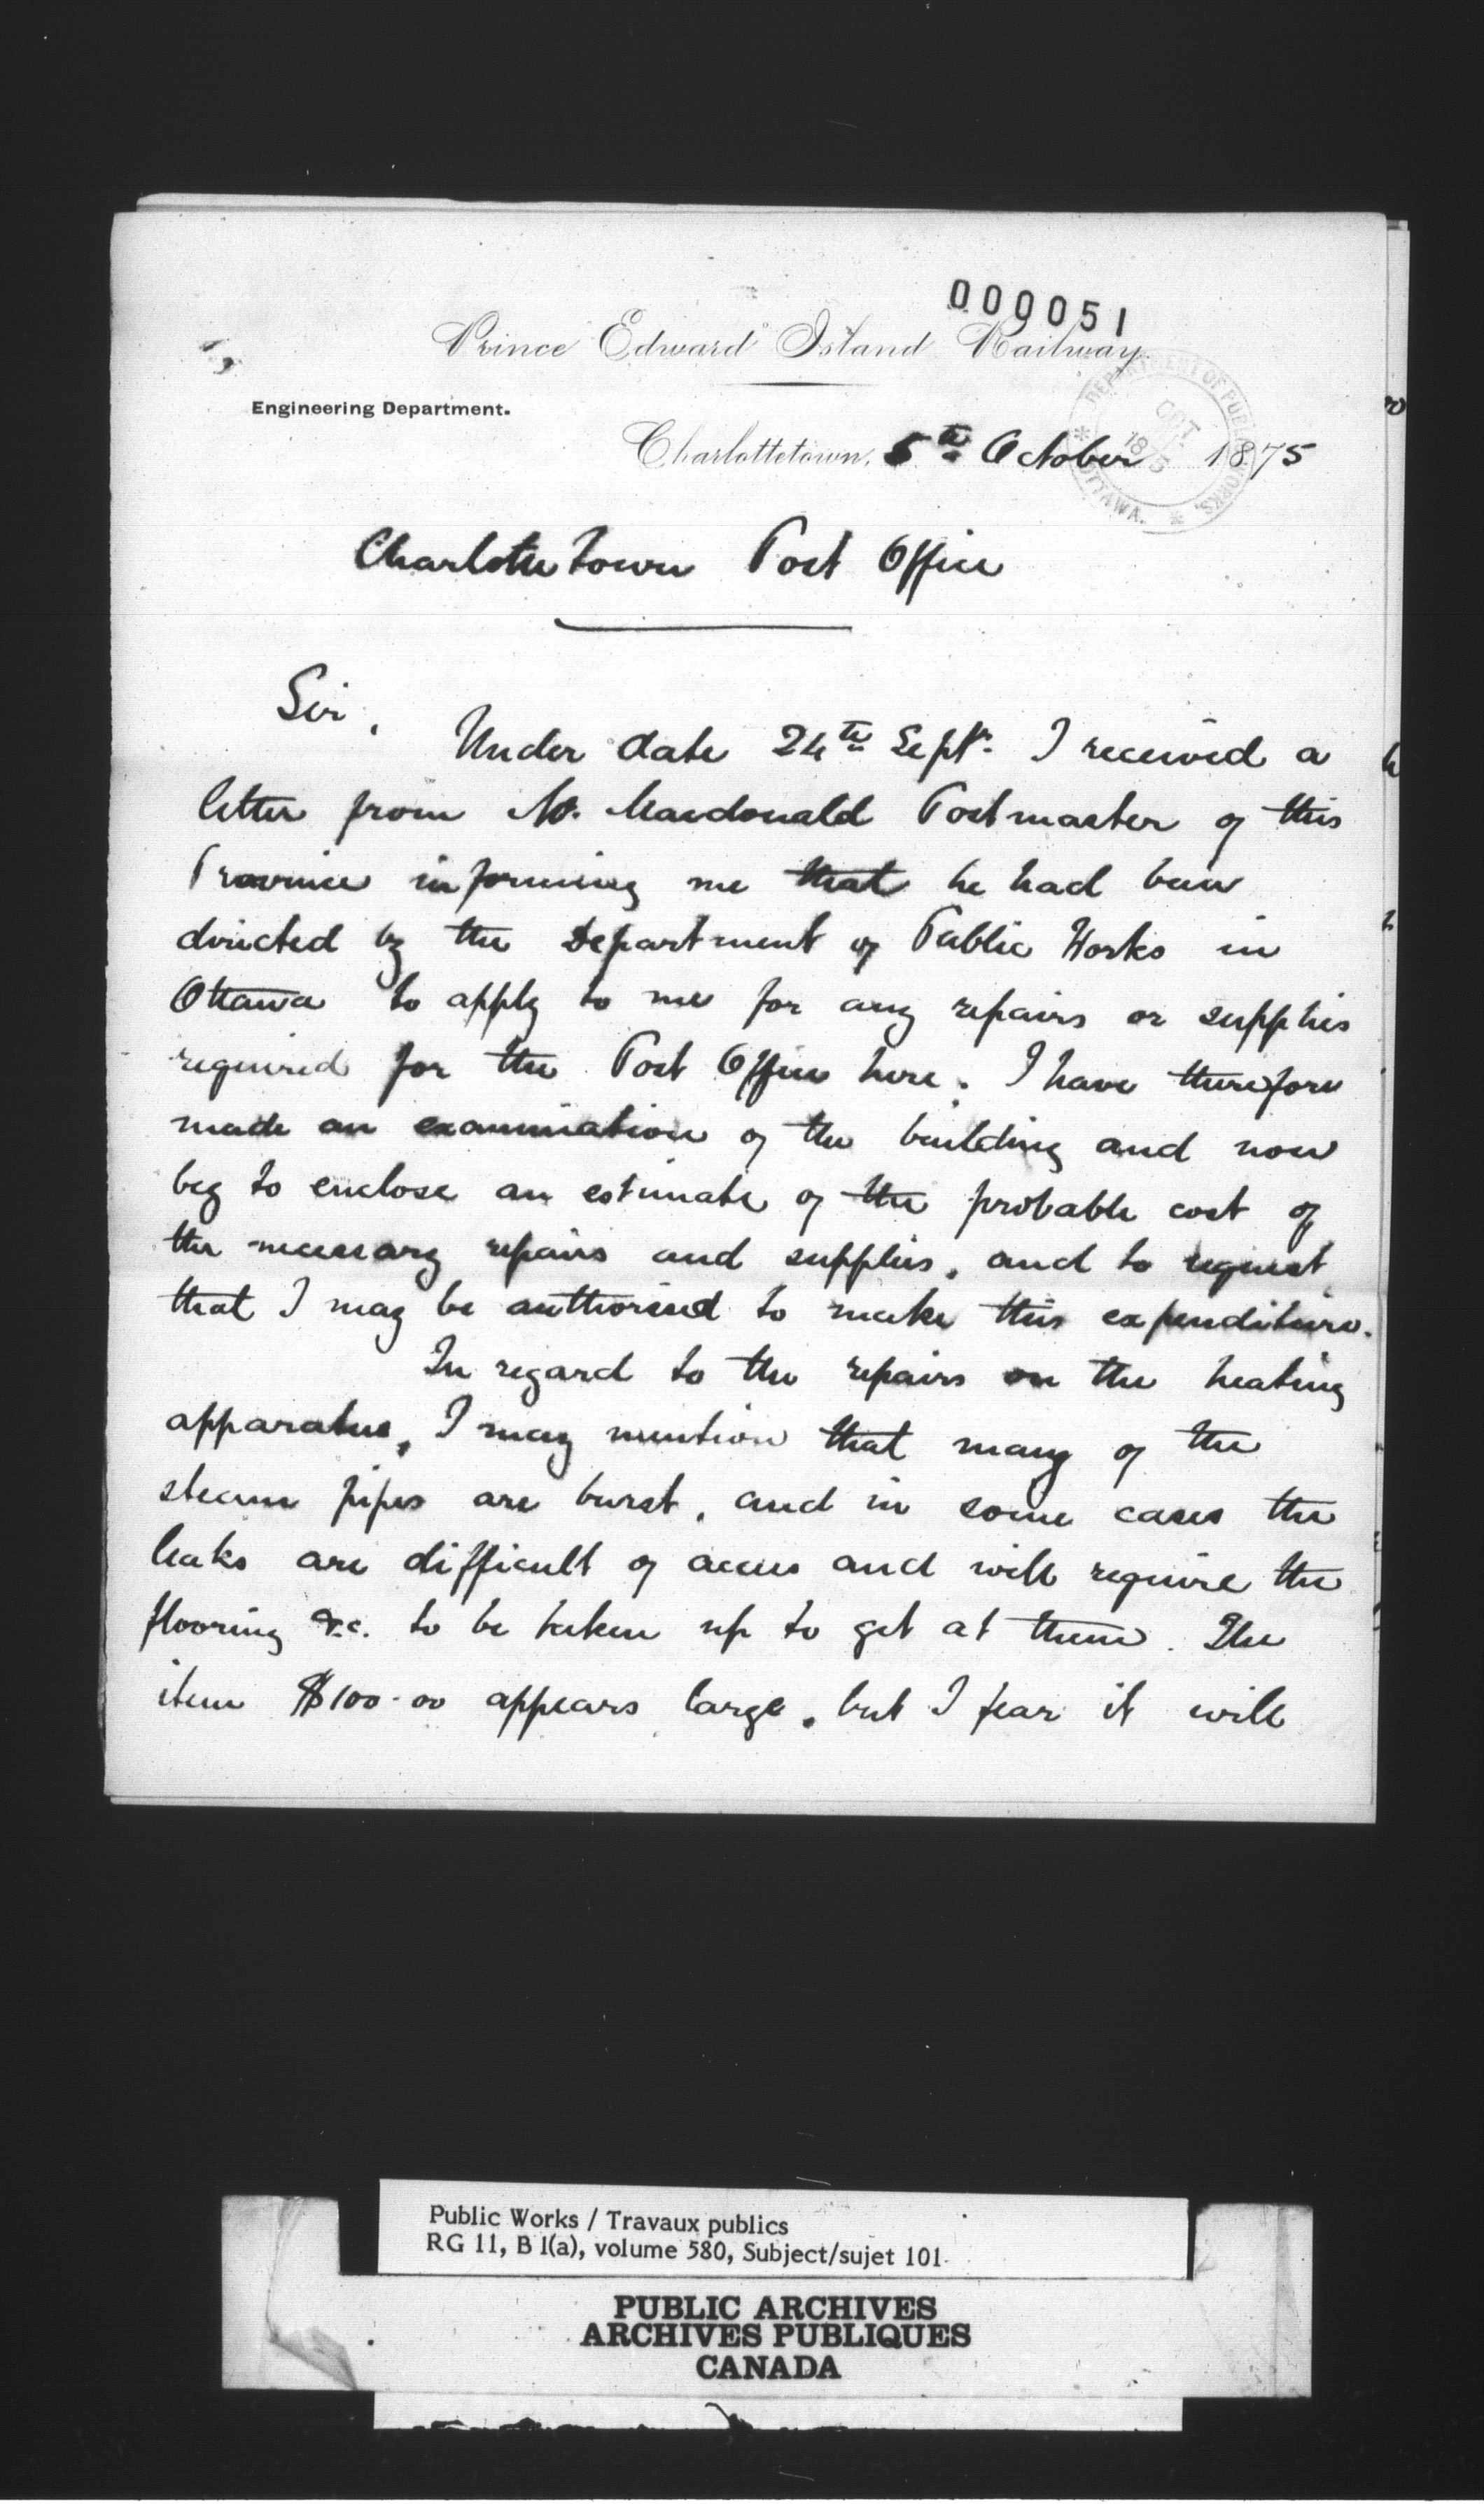 000051
Prince Edward Island Railway.
Engineering Department.
DEPARTMENT OF PUBLIC WORKS. OTTAWA.
OCT
1875
Charlottetown, 5th October 1875
Charlottetown Post Office
Sir,
Under date 24th Sept. I received a
letter from Mr. Macdonald Postmaster of this
Province informing me that he had been
directed by the Department of Public Works in
Ottawa to apply to me for any repairs or supplies
required for the Post Office here. I have therefore
made an examination of the building and now
beg to enclose an estimate of the probable cost of
the necessary repairs and supplies, and to request
that I may be authorised to make this expenditure.
In regard to the repairs on the heating
apparatus, I may mention that many of the
steam pipes are burst, and in some cases the
leaks are difficult of access and will require the
flooring &c. to be taken up to get at them. The
item $100.00 appears large, but I fear it will
Public Works / Travaux publics
RG 11, B 1(a), volume 580, Subject/sujet 101
PUBLIC ARCHIVES
ARCHIVES PUBLIQUES
CANADA